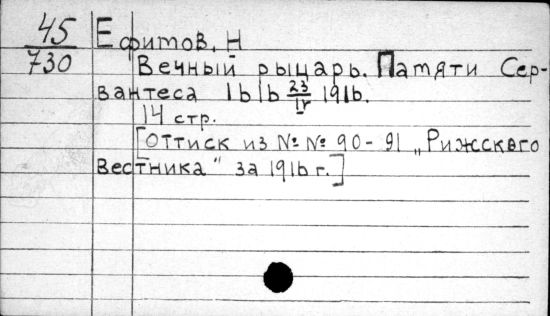 45
730
Ефимов, Н
Вечный рыцарь. Памяти Сер-
вантеса 1616 23/IV 1916.
14 стр.
[Оттиск из №№ 90-91 „Рижскаго
Вестника" за 1916 г.]